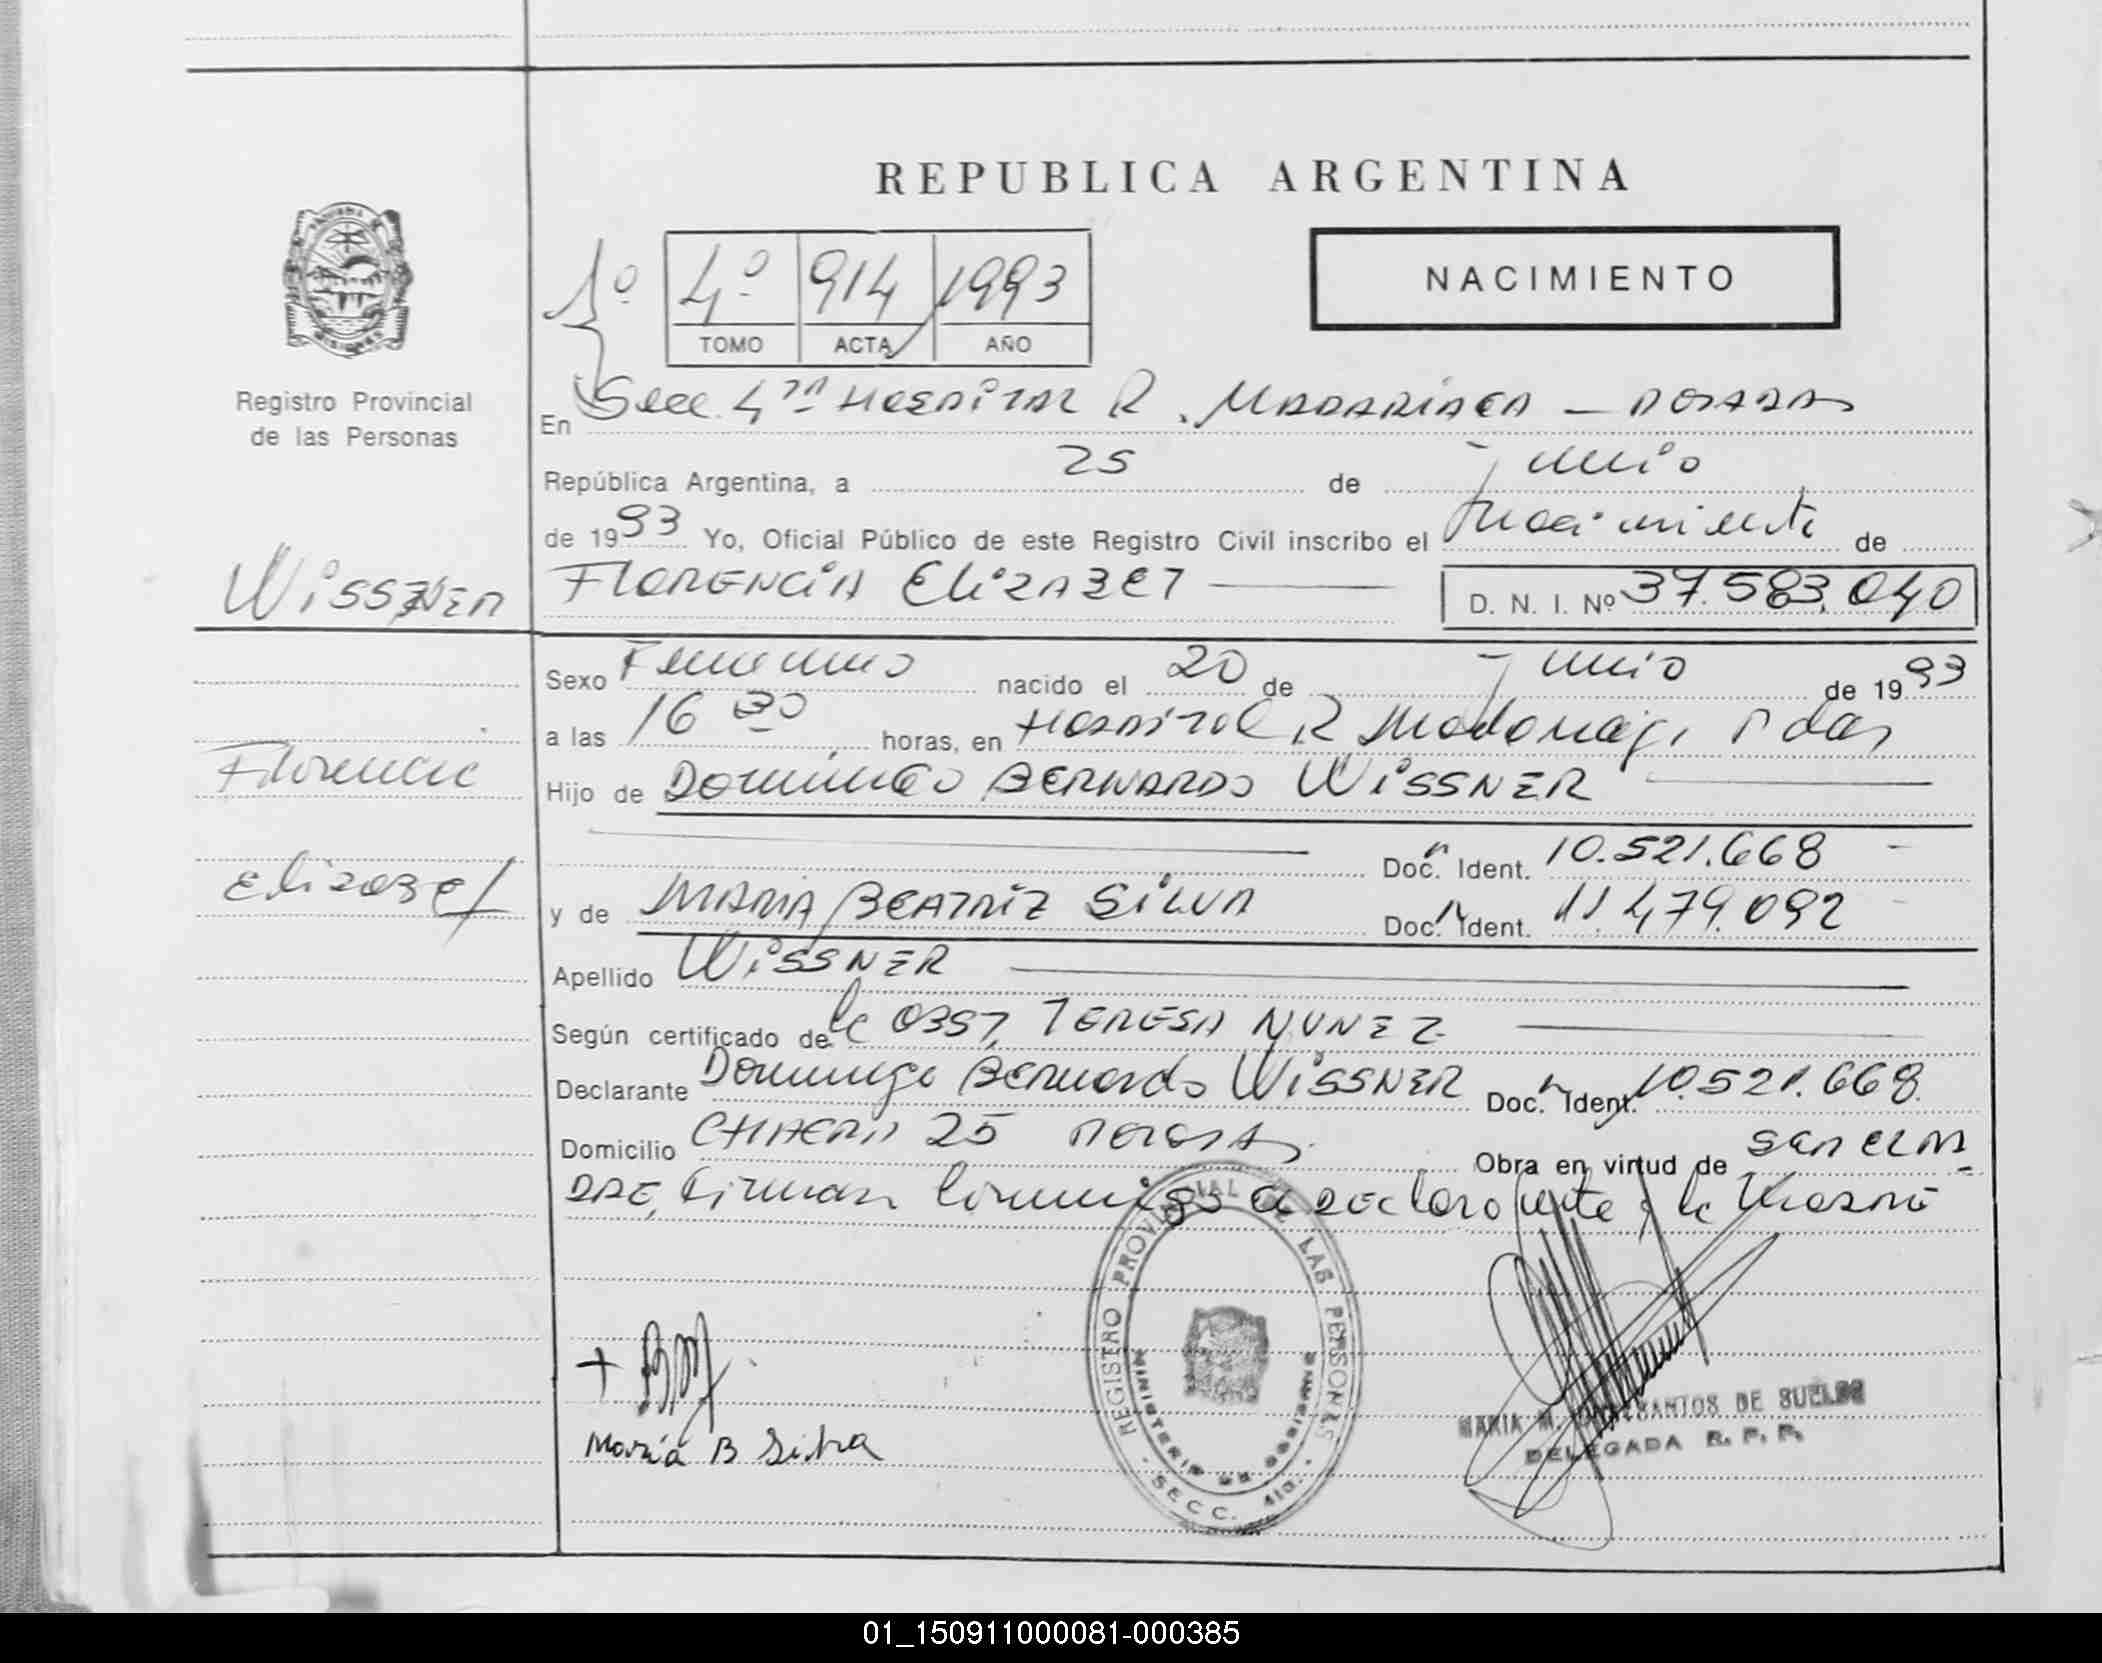 REPUBLICA ARGENTINA
NACIMIENTO
1º 4º 914 1993
TOMO ACTA AÑO
Registro Provincial
de las Personas
En Secc. 4ta HOSPITAL R. MADARIAGA — POSADAS
República Argentina, a 25 de junio
de 1993 Yo, Oficial Público de este Registro Civil inscribo el nacimiento de
WISSNER
FLORENCIA ELIZABET
D. N. I. Nº 37.583.040
Sexo Femenino nacido el 20 de junio de 1993
a las 16 30 horas, en HOSPITAL R Madariaga, Pdas
Florencia
Hijo de DOMINGO BERNARDO WISSNER
Doc. Ident. 10.521.668
Elizabet
y de MARIA BEATRIZ SILVA Doc. Ident. 11.479.092
Apellido WISSNER
Según certificado de la OBST, TERESA NUNEZ
Declarante Domingo Bernardo WISSNER Doc. Ident. 10.521.668
Domicilio CHACRA 25 Obra en virtud de
Firman conmigo el declarante y la
REGISTRO PROVINCIAL DE LAS PERSONAS
MINISTERIO DE GOBIERNO
SECC. 4ta.
Maria B Silva
MARIA M. SANTOS DE SUELDO
DELEGADA R. P. P.
01_150911000081-000385